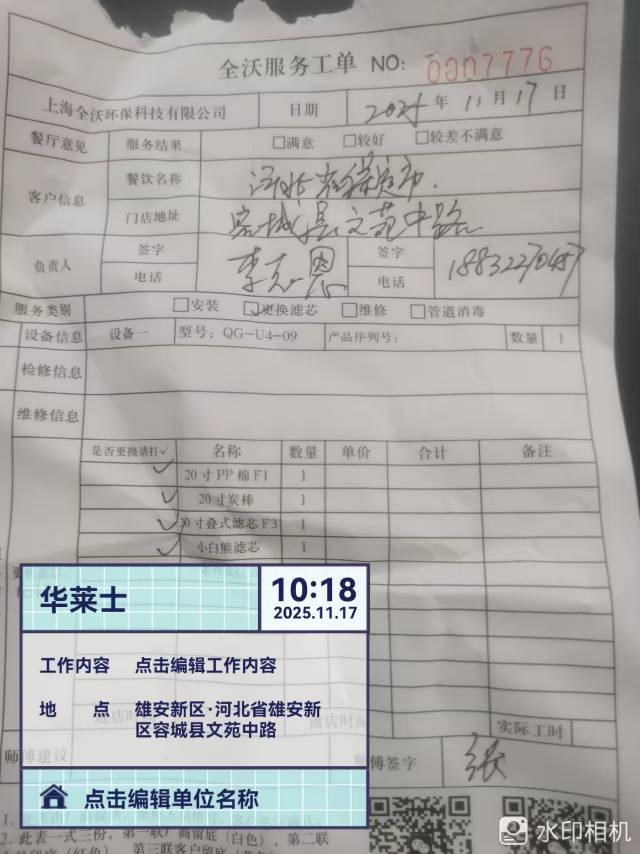 全沃服务工单 NO: 0007776
上海全沃环保科技有限公司 日期 年 11月17日
餐厅意见 服务结果 □满意 □较好 □较差不满意
客户信息 餐饮名称
门店地址 容城县文苑中路
负责人 签字 签字
电话 电话
服务类别 □安装 ☑更换滤芯 □维修 □管道消毒
设备信息 设备一 型号：QG-U4-09 产品序列号： 数量 1
检修信息
维修信息
是否更换请打✓ 名称 数量 单价 合计 备注
✓ 20寸PP棉F1 1
✓ 20寸炭棒 1
✓ 20寸叠式滤芯F3 1
✓ 小白熊滤芯 1
华莱士 10:18
2025.11.17
工作内容 点击编辑工作内容
地 点 雄安新区·河北省雄安新
区容城县文苑中路
点击编辑单位名称
实际工时
师傅建议 签字 张
2. 此表一式三份，第一联 商留底（白色），第二联
第三联客户留底
水印相机